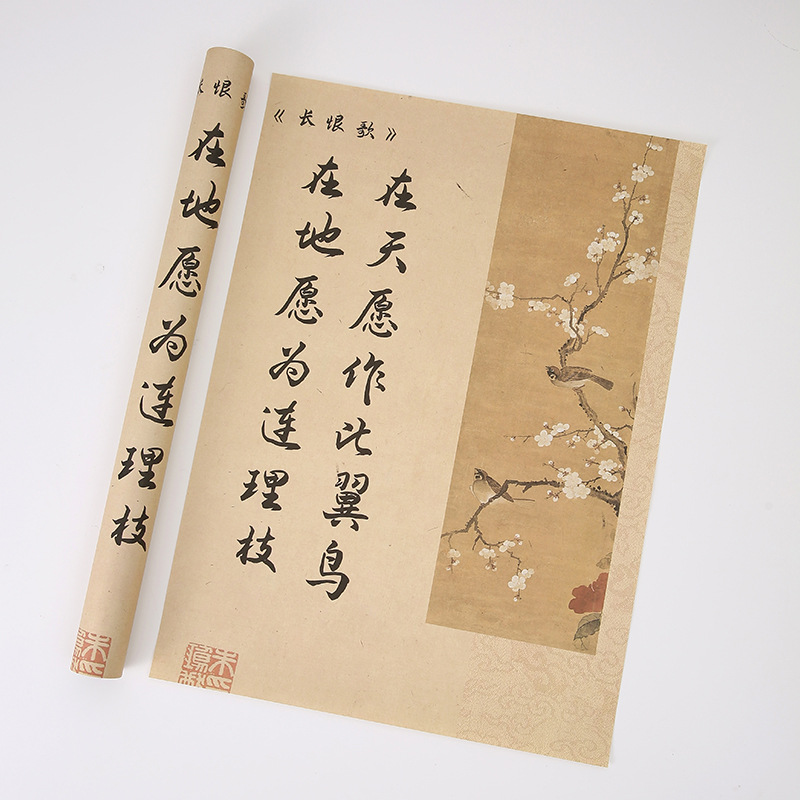 《长恨歌》
在天愿作比翼鸟
在地愿为连理枝
长恨歌
在地愿为连理枝